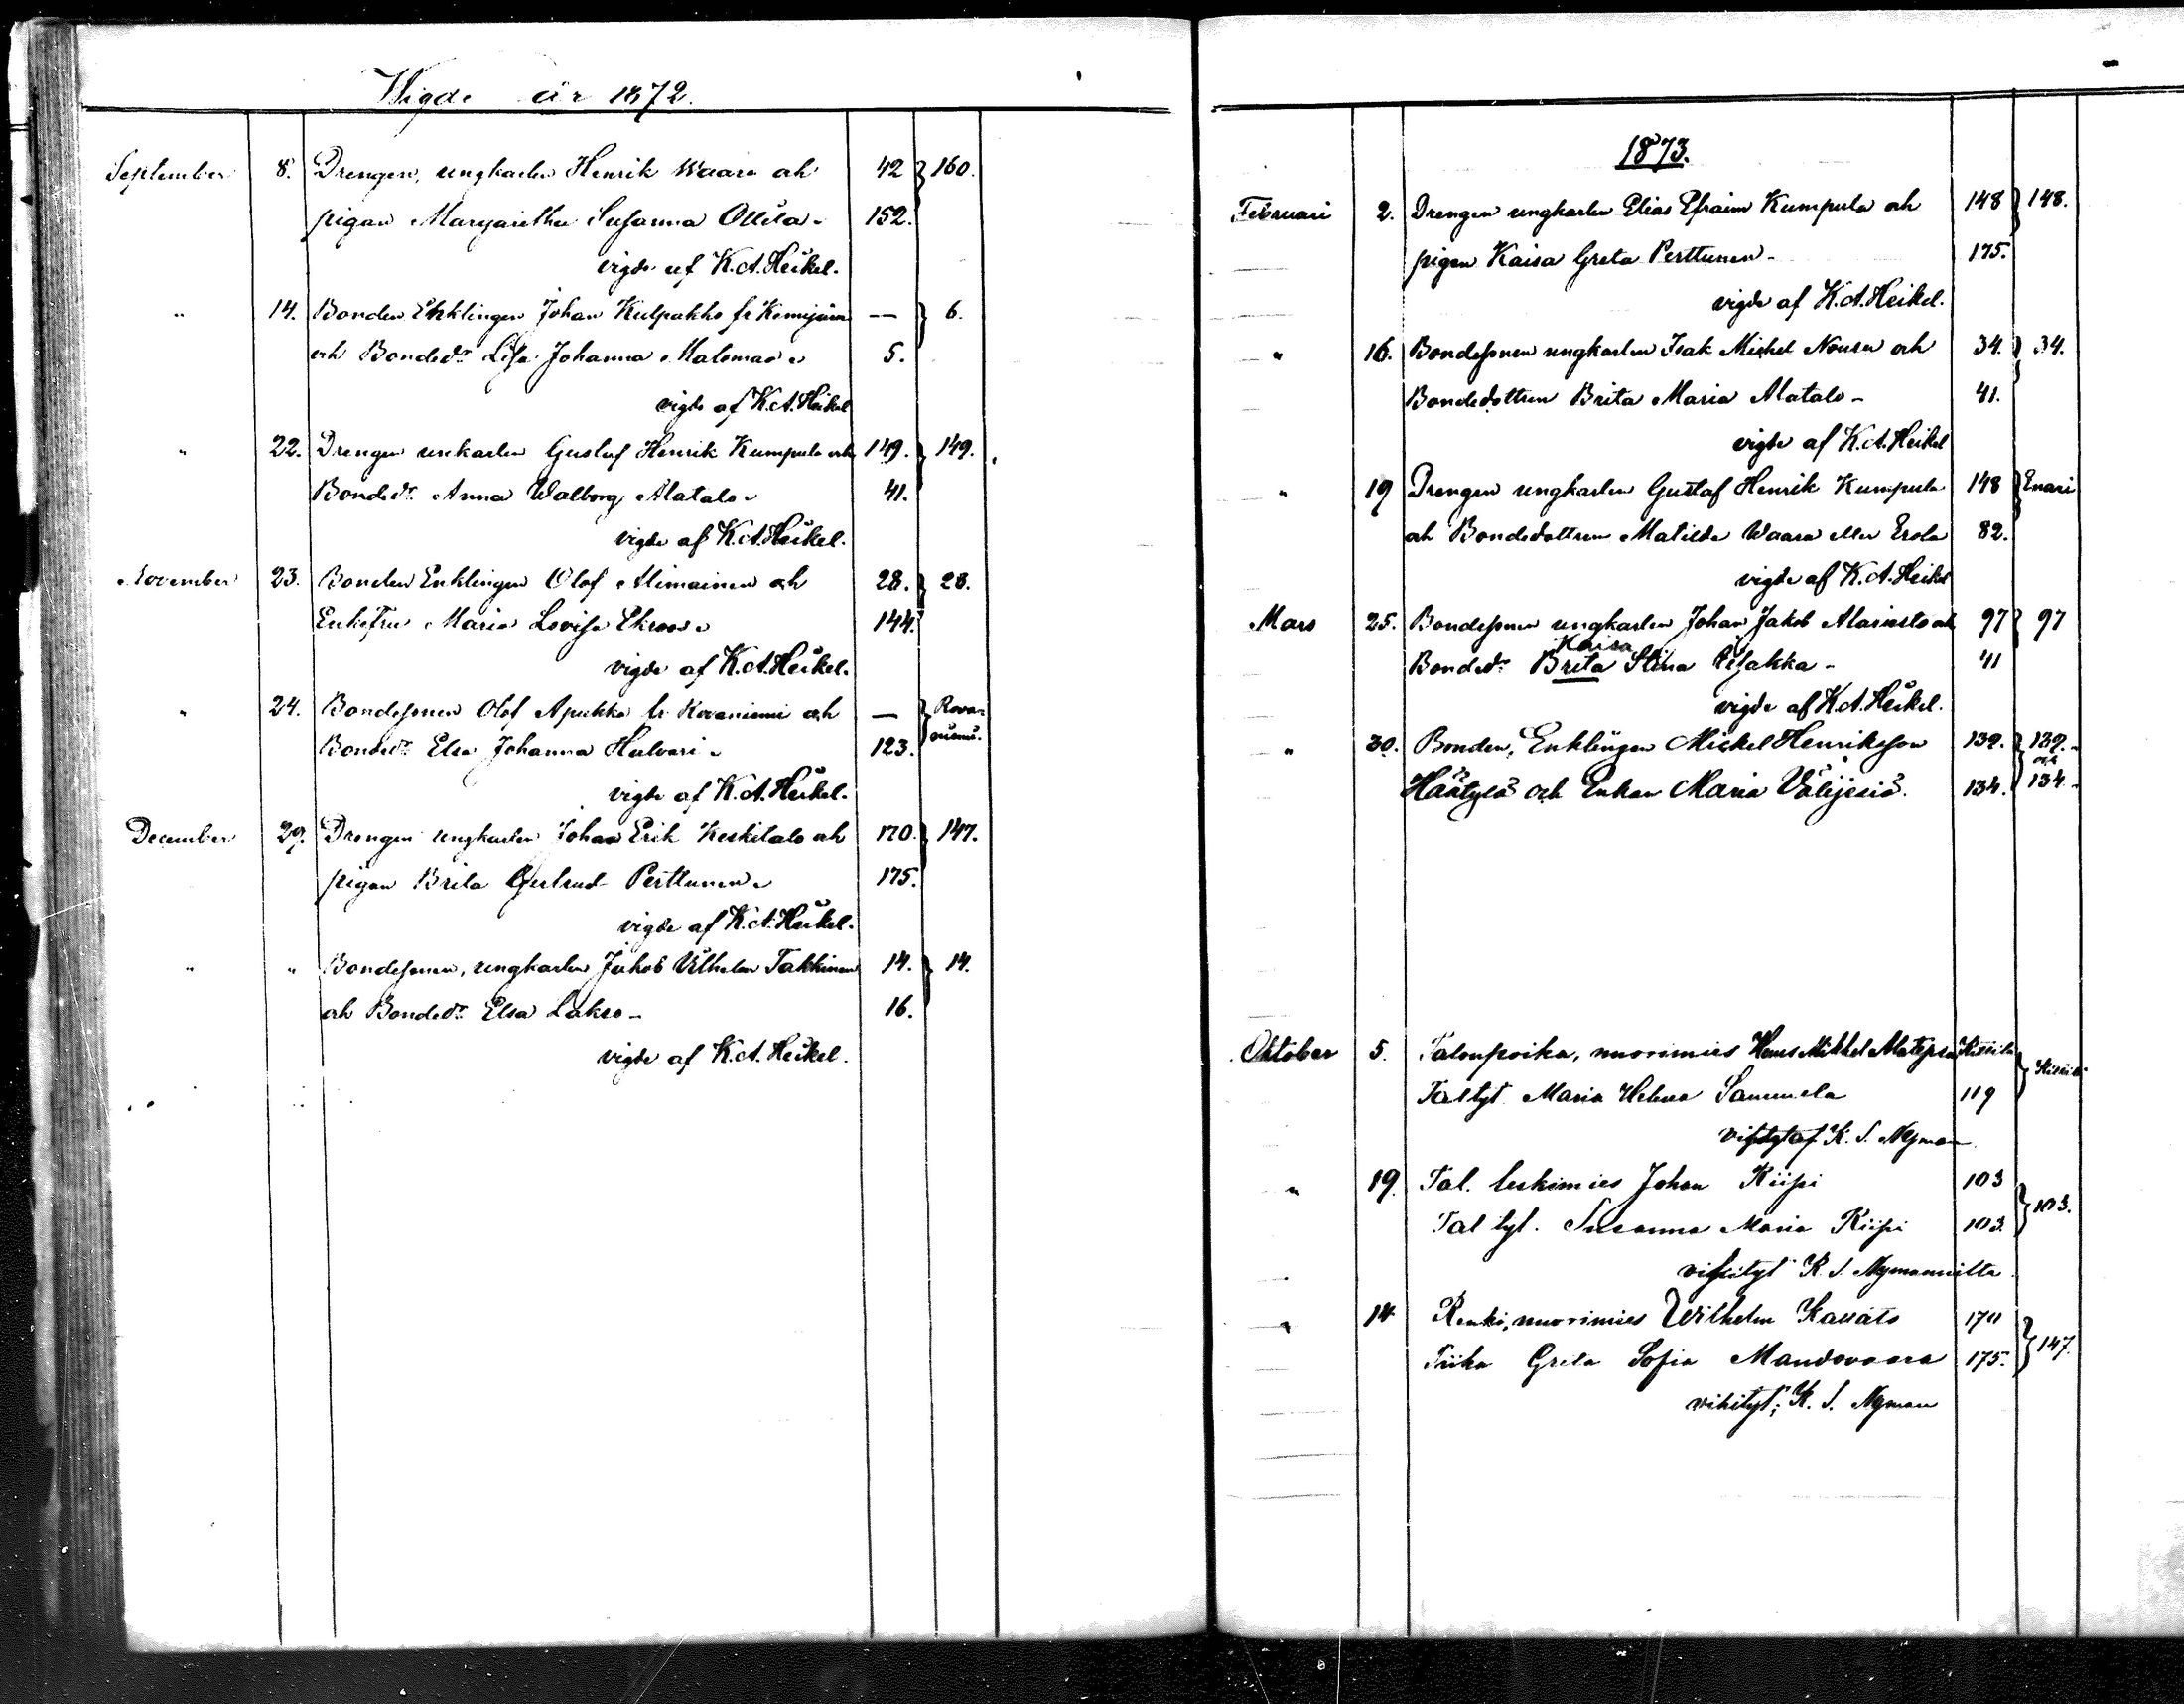 Wigde år 1872.
September 8. Drengen, ungkarlen Henrik Waara och 42 } 160.
pigan Margaretha Susanna Ollila. 152.
vigde af K.A. Heikel.
" 14. Bonden Enklingen Johan Kulpakko fr Kemijärvi — } 6.
och Bondedr Lisa Johanna Malomaa. 5.
vigde af K.A. Heikel
" 22. Drengen unkarlen Gustaf Henrik Kumpula och 149. } 149.
Bondedr Anna Walborg Alatalo. 41.
vigde af K.A. Heikel.
November 23. Bonden Enklingen Olof Alimainen och 28. } 28.
Enkefru Maria Lovisa Ekroos. 144.
vigde af K.A. Heikel.
" 24. Bondesonen Olof Apukka fr Rovaniemi och — } Rova-
niemi.
Bondedr Elsa Johanna Halvari. 123.
vigde af K.A. Heikel.
December 29. Drengen ungkarlen Johan Erik Keskitalo och 170. } 147.
pigan Brita Gertrud Perttunen. 175.
vigde af K.A. Heikel.
" " Bondesonen, ungkarlen Jakob Vilhelm Takkinen 14. } 14.
och Bondedr Elsa Lakso - 16.
vigde af K.A. Heikel.
1873.
Februari 2. Drengen ungkarlen Elias Efraim Kumpula och 148 } 148.
pigan Kaisa Greta Perttunen - 175.
vigde af K.A. Heikel.
" 16. Bondesonen ungkarlen Isak Mickel Nousu och 34. } 34.
Bondedottren Brita Maria Alatalo - 41.
vigde af K.A. Heikel
" 19 Drengen ungkarlen Gustaf Henrik Kumpula 148 } Enari
och Bondedottren Matilda Waara eller Erola 82.
vigde af K.A. Heikel
Mars 25. Bondesonen ungkarlen Johan Jakob Alaristo och 97 } 97
Kaisa
Bondedr Brita Stina 41
vigde af K.A. Heikel.
" 30. Bonden, Enklingen Mickel Henriksson 139. } 139.
och
Häätylä och Enkan Maria Välijesiö. 134. 134.
Oktober 5. Talonpoika, nuorimies Hans Mikkel Kittilä } Kittilä
Taltyt. Maria Helena Sammela 119
vihityt af K. S. Nyman
" 19. Tal. leskimies Johan Kiipi 103 } 103.
Tal tyt. Susanna Maria Kiipi 103.
vihityt K. S. Nymannilta
" 14 Renki, nuorimies Wilhelm 170 } 147.
Piika Greta Sofia Mandovaara 175.
vihityt; K. S. Nyman